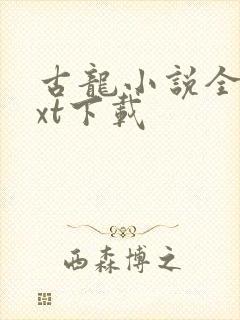 古龍小説全
xt下載
西森博之